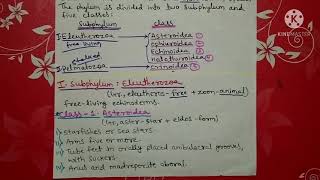 The phylum is divided into two subphylum and
five classes:
Subphylum class
I- Eleutherozoa Asteroidea ①
free living Ophiuroidea ②
Echinoidea ③
stalked Holothuroidea ④
II- Pelmatozoa Crinoidea ⑤
I- Subphylum: Eleutherozoa
(Ler, eleuthero-free + zoon-animal)
free-living echinoderms.
Class-1- Asteroidea
(Ler, aster-star + eidos-form)
i) starfishes or sea stars.
ii) Arms five or more.
iii) Tube feet in orally placed ambulacral grooves,
with suckers.
iv) Anus and madreporite aboral.
KINEMASTER